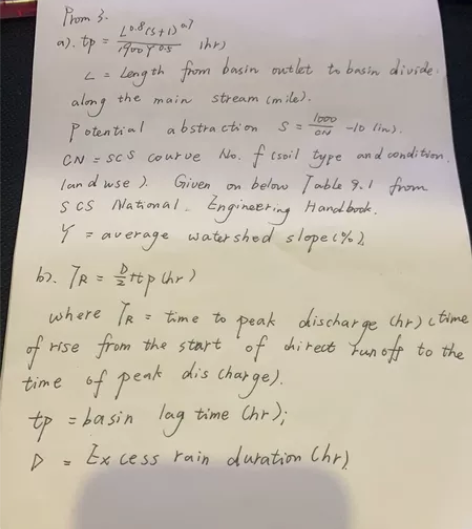 Prom 3.
a). tp = L^0.8 (S+1)^0.7 / 1900 Y^0.5 (hr)
L = Length from basin outlet to basin divide.
along the main stream (mile).
Potential abstraction S = 1000/CN -10 (in).
CN = SCS courve No. f (soil type and condition,
land wse). Given on below Table 9.1 from
SCS National. Engineering Handbook.
Y = average watershed slope (%).
b). TR = D/2 + tp (hr)
where TR = time to peak discharge (hr) (time
of rise from the start of direct runoff to the
time of peak discharge).
tp = basin lag time (hr);
D = Excess rain duration (hr)